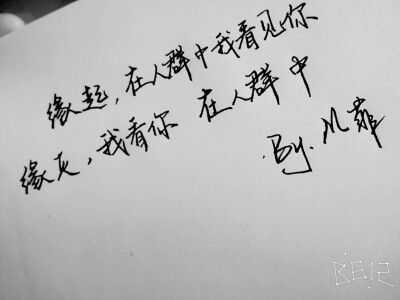 缘起，在人群中我看见你
缘灭，我看你 在人群中
By.
B612